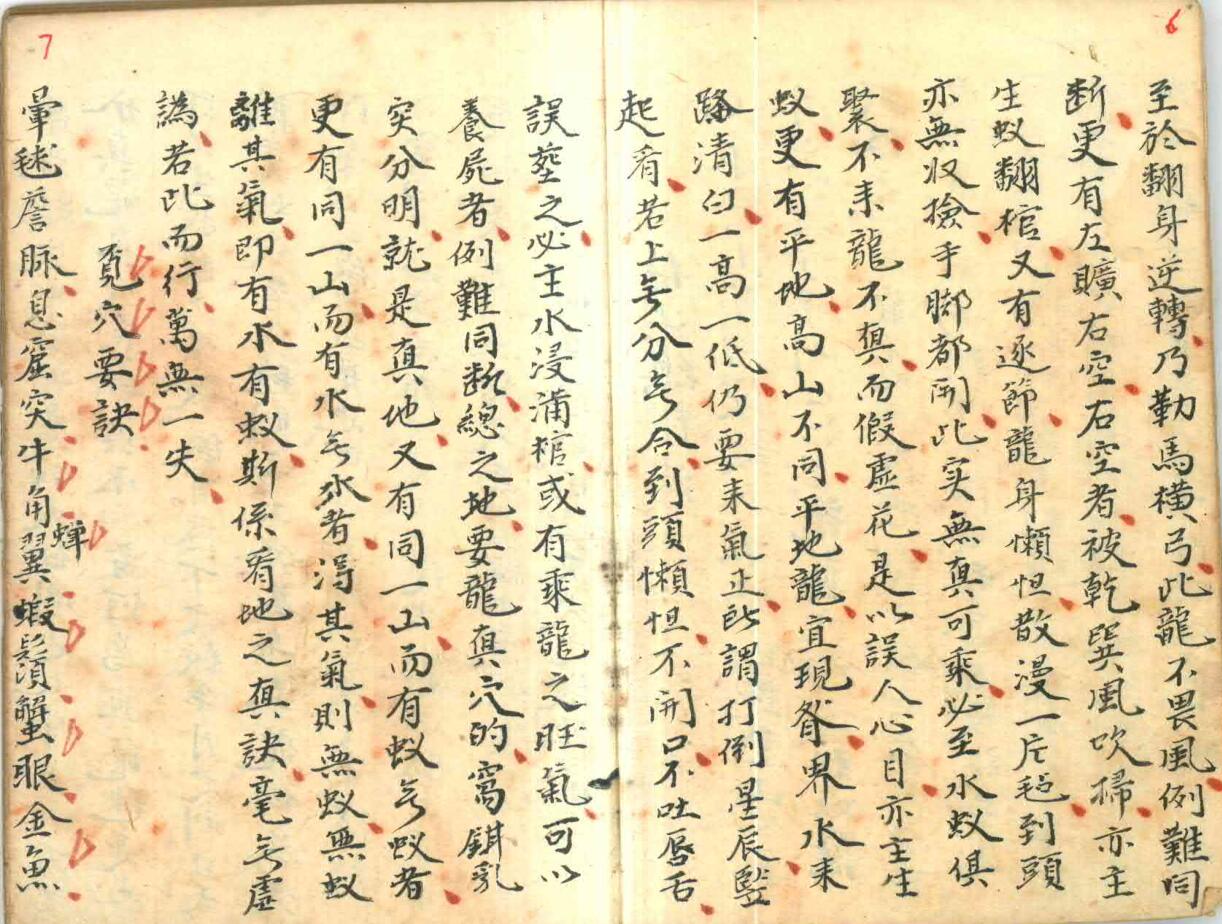 6
至於翻身逆轉乃勒馬橫弓此龍不畏風例難同
断更有左曠右空右空者被乾巽風吹掃亦主
生蚁翻棺又有逐節龍身懶怛散漫一片毡到頭
亦無收撿手脚都開此实無真可乘必至水蚁俱
聚不耒龍不真而假虛花是以誤人心目亦主生
蚁更有平地高山不同平地龍宜現脊界水耒
清白一高一低仍要耒氣止所謂打倒星辰竪
起看若上无分无合到頭懶怛不開口不吐唇舌
7
誤塟之必主水浸滿棺或有乘龍之旺氣可以
養屍者例難同断總之地要龍真穴的窩鉗乳
突分明就是真地又有同一山而有蚁无蚁者
更有同一山而有水无水者淂其氣則無蚁無蚁
離其氣即有水有蚁斯係看地之真訣毫无虛
譌若此而行萬無一失
覓穴要訣
暈毬簷脈息窟突牛角蟬翼蝦鬚蟹眼金魚